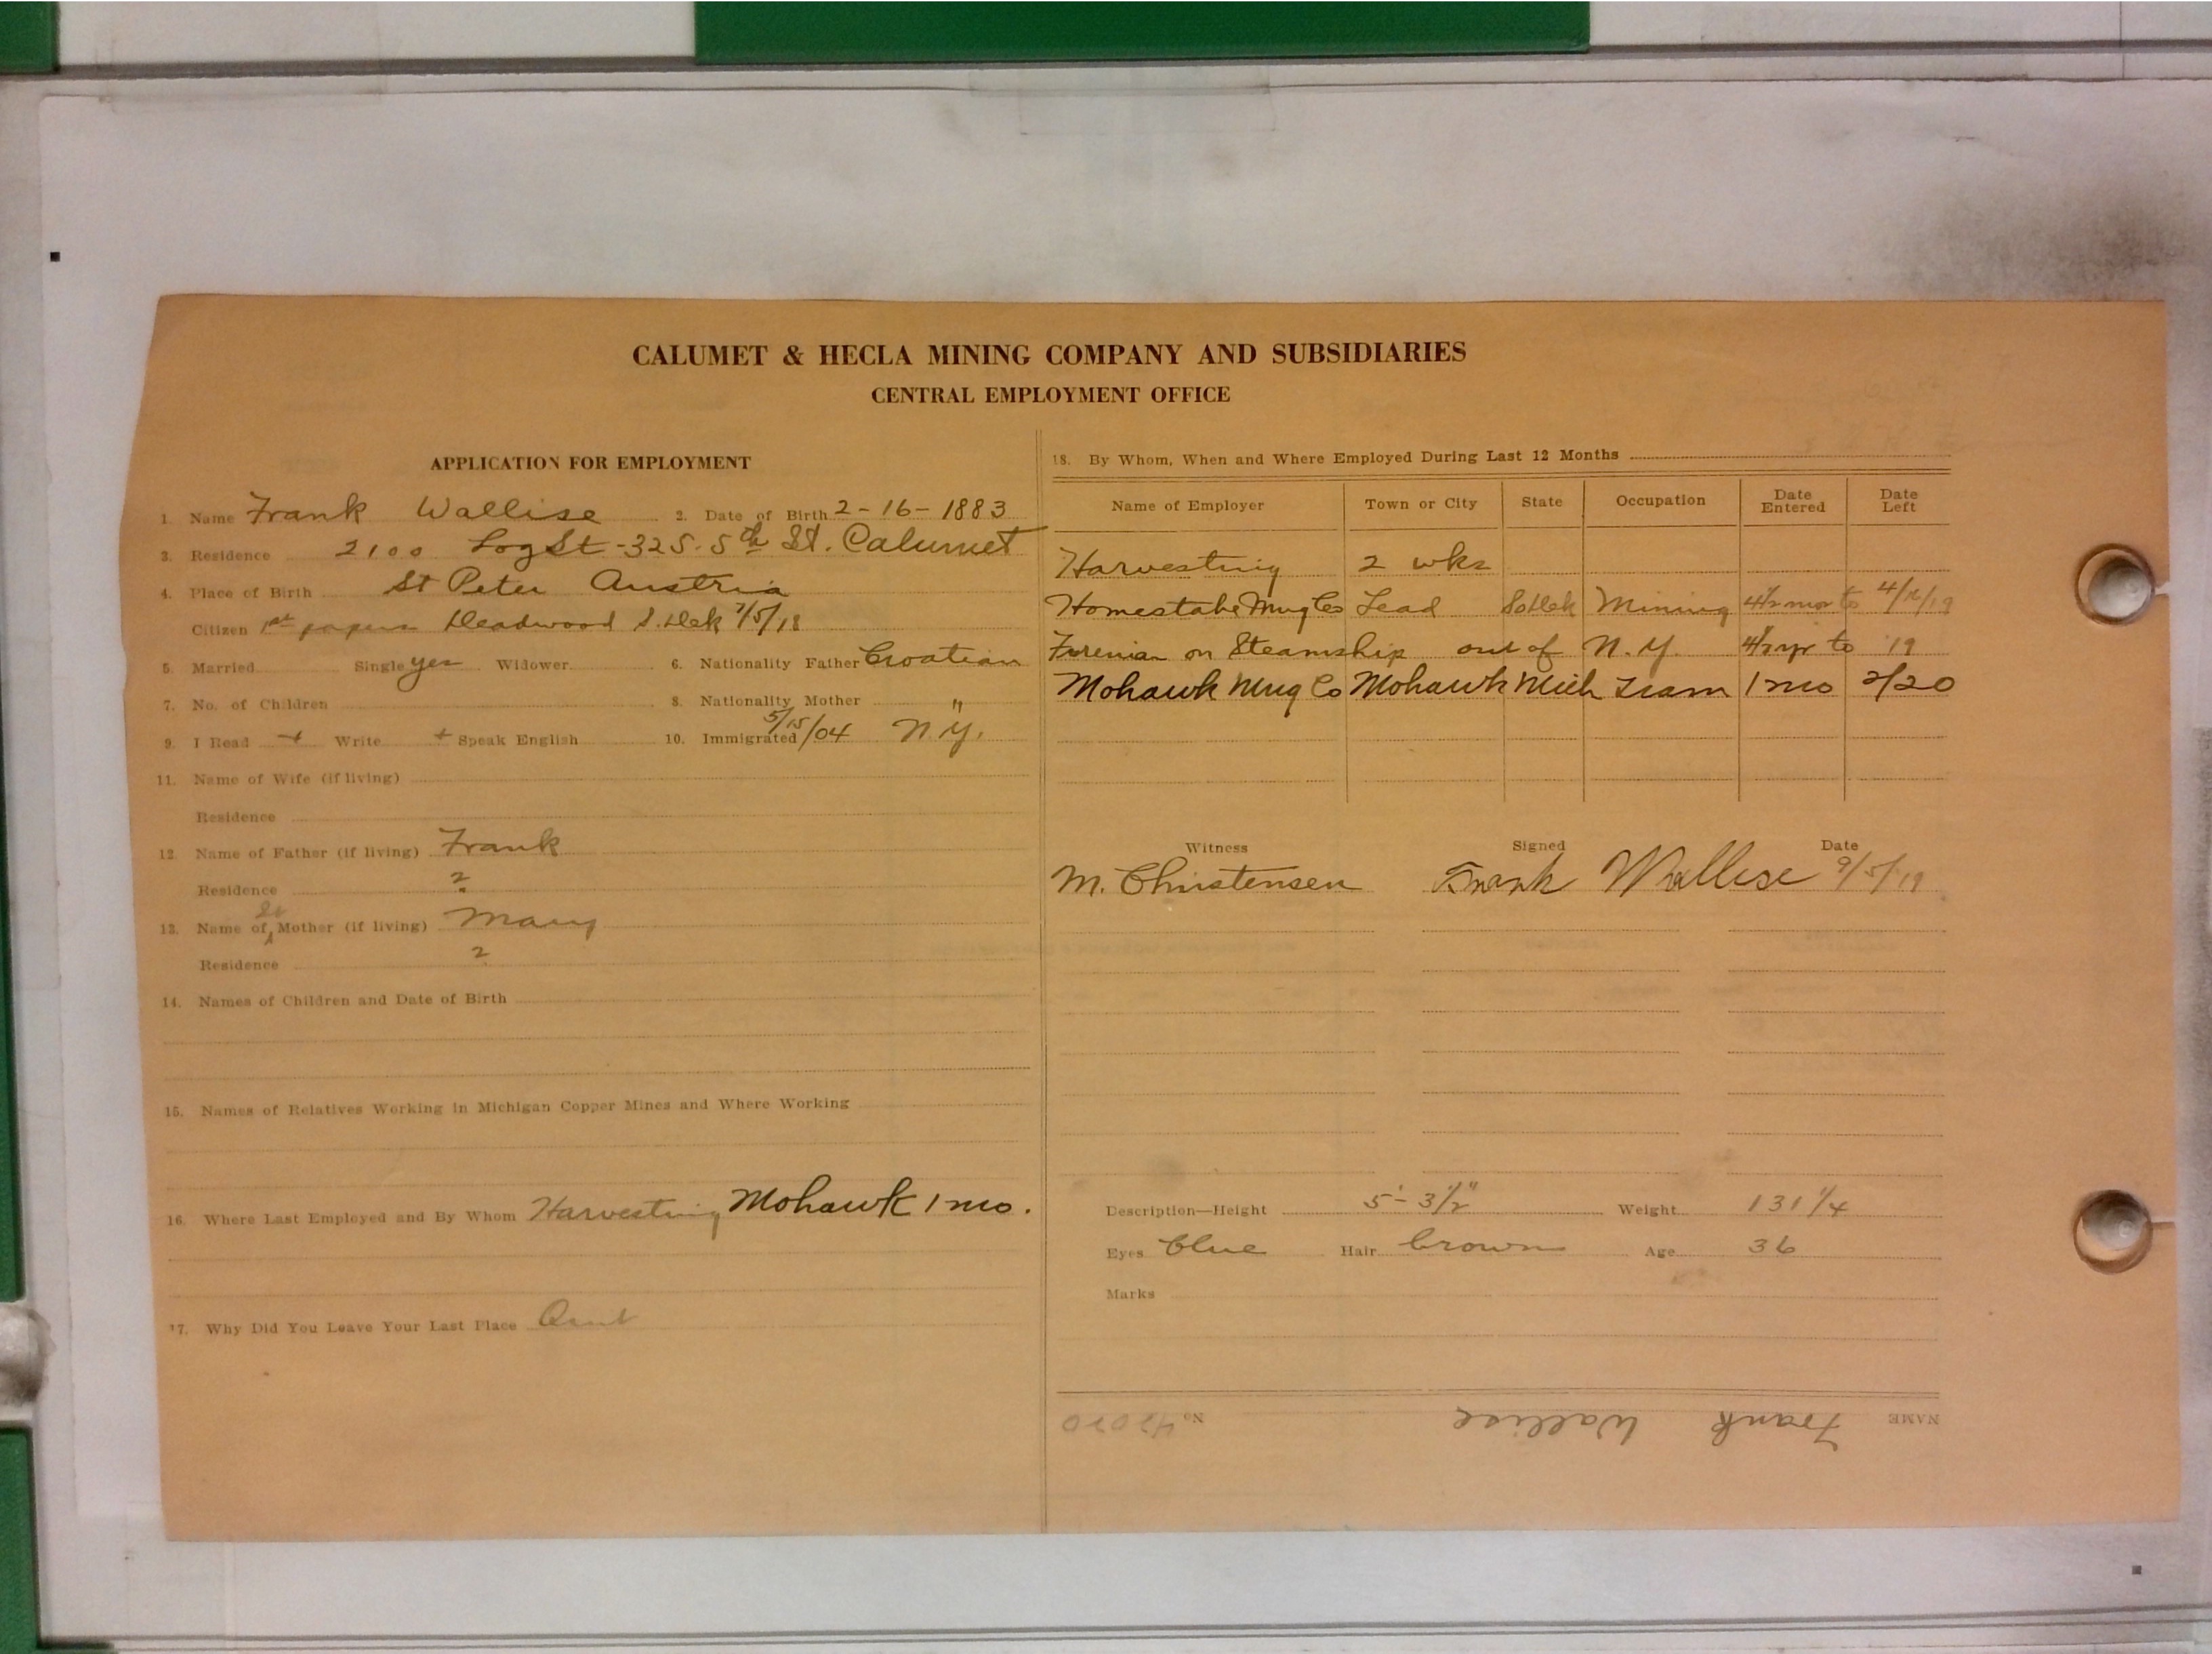 CALUMET & HECLA MINING COMPANY AND SUBSIDIARIES
CENTRAL EMPLOYMENT OFFICE
APPLICATION FOR EMPLOYMENT
1. Name Frank Wallise 2. Date of Birth 2-16-1883
3. Residence 2100 Log St - 325-5th St. Calumet
4. Place of Birth St Peter Austria
Citizen 1st papers Deadwood S. Dak 7/5/18
5. Married Single yes Widower 6. Nationality Father Croatian
7. No. of Children 8. Nationality Mother "
9. I Read + Write + Speak English 10. Immigrated 5/15/04 N.Y.
11. Name of Wife (if living)
Residence
12. Name of Father (if living) Frank
Residence ?
13. Name of St Mother (if living) Mary
Residence ?
14. Names of Children and Date of Birth
15. Names of Relatives Working in Michigan Copper Mines and Where Working
16. Where Last Employed and By Whom Harvesting Mohawk 1 mo.
17. Why Did You Leave Your Last Place Quit
18. By Whom, When and Where Employed During Last 12 Months
Name of Employer Town or City State Occupation Date Entered Date Left
Harvesting 2 wks
Homestake Mng Co Lead So Dak Mining 4 1/2 mos to 4/16/19
Fireman on Steamship out of N.Y. 4 1/2 yr to '19
Mohawk Mng Co Mohawk Mich Tram 1 mo 2/20
Witness Signed Date
M. Christensen Frank Wallise 9/5/19
Description—Height 5'-3 1/2" Weight 131 1/4
Eyes blue Hair brown Age 36
Marks
NAME Frank Wallise No. 42020